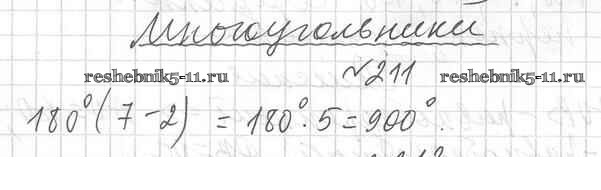 Многоугольники
№211
reshebnik5-11.ru reshebnik5-11.ru
180°(7-2) = 180°·5=900°.